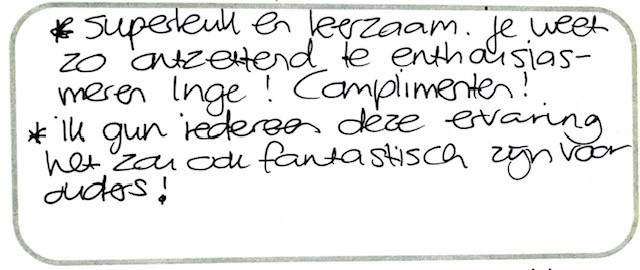 * superleuk en leerzaam. Je weet
zo ontzettend te enthousias-
meren Inge! Complimenten!
* ik gun iedereen deze ervaring
het zou ook fantastisch zijn voor
ouders!